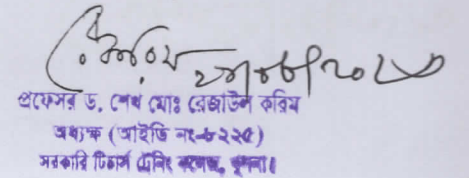 প্রফেসর ড. শেখ মোঃ রেজাউল করিম
অধ্যক্ষ (আইডি নং-৮২২৫)
সরকারি টিচার্স ট্রেনিং কলেজ, খুলনা।